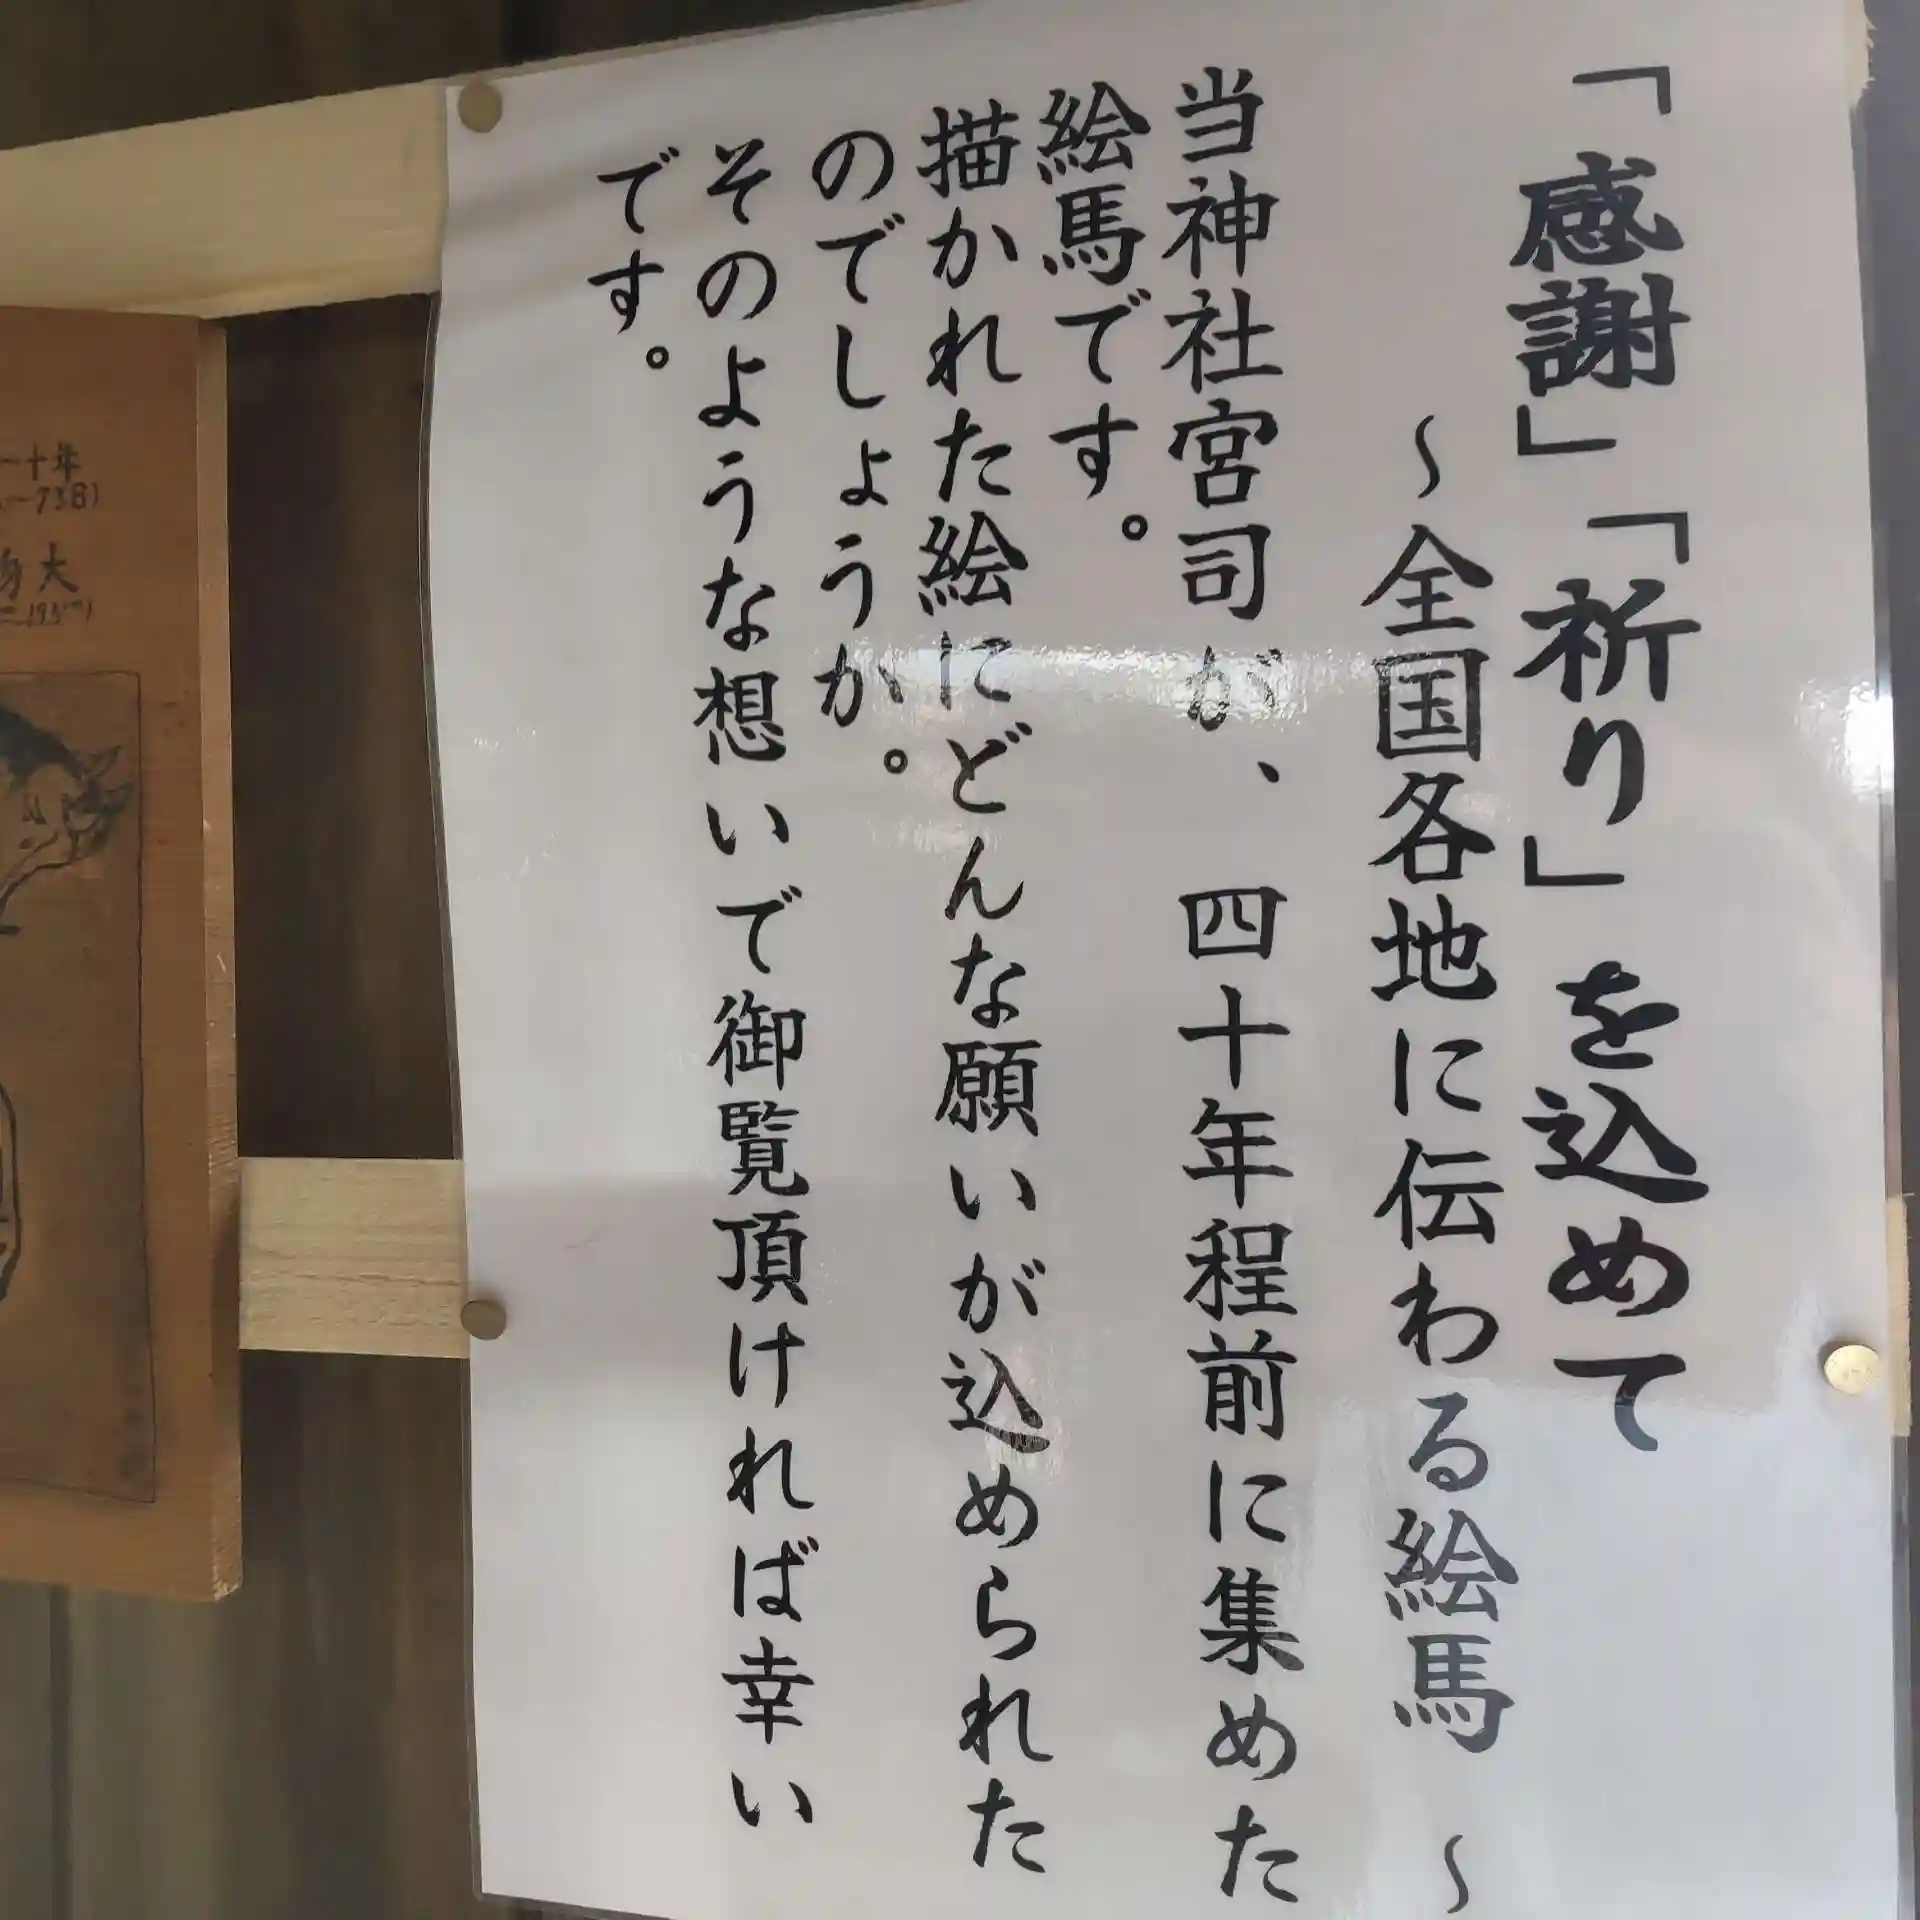 「感謝」「祈り」を込めて
～全国各地に伝わる絵馬 ～
当神社宮司が、四十年程前に集めた
絵馬です。
描かれた絵にどんな願いが込められた
のでしょうか。
そのような想いで御覧頂ければ幸い
です。
十年
～738)
大